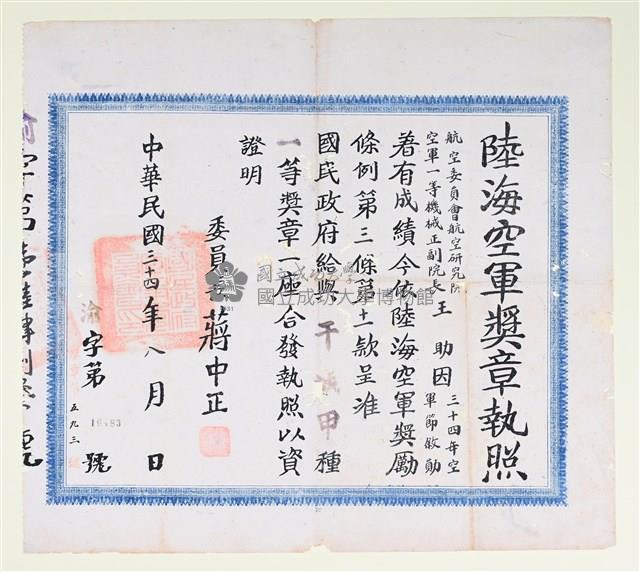 陸海空軍獎章執照
航空委員會航空研究所
空軍一等機械正副院長
王助因
三十四年空
軍節敘勛
著有成績今依陸海空軍獎勵
條例第三條第十一款呈准
國民政府給與干城甲種
一等獎章一座合發執照以資
證明
委員長蔣中正
中華民國三十四年八月 日
渝字第 號
五九三
國立成功大學
國立成功大學博物館
1931